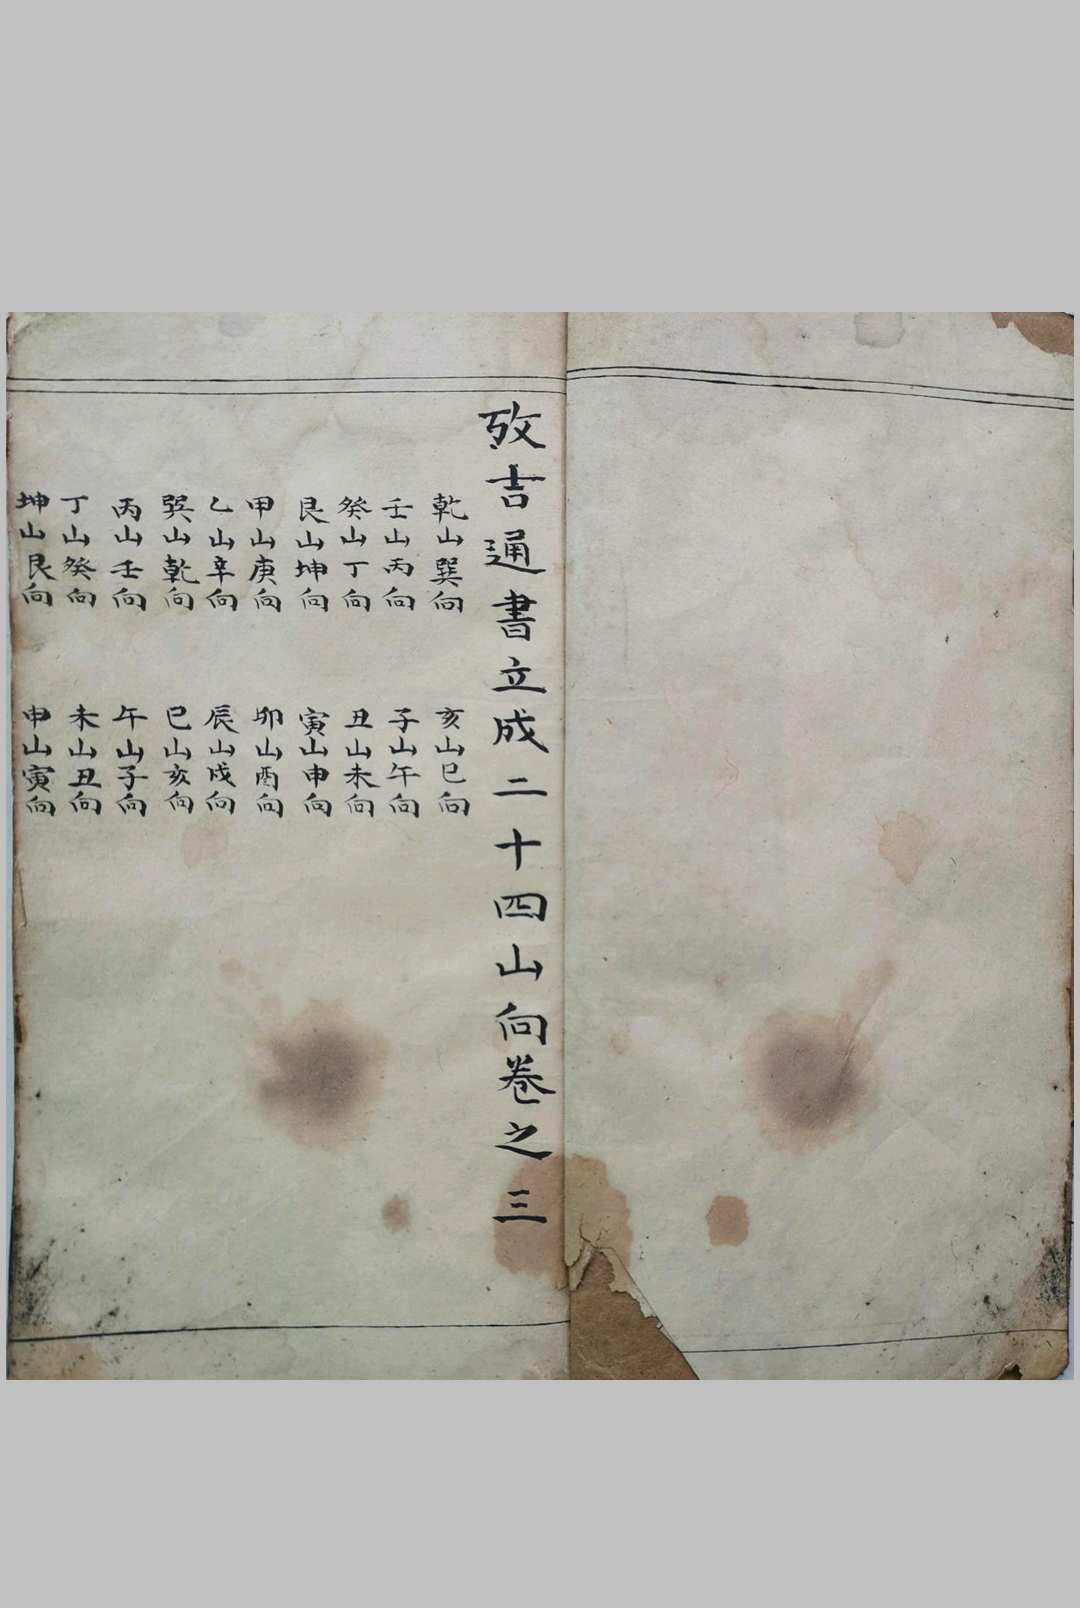 攷吉通書立成二十四山向卷之三
乾山巽向
亥山巳向
壬山丙向
子山午向
癸山丁向
丑山未向
艮山坤向
寅山申向
甲山庚向
卯山酉向
乙山辛向
辰山戌向
巽山乾向
巳山亥向
丙山壬向
午山子向
丁山癸向
未山丑向
坤山艮向
申山寅向